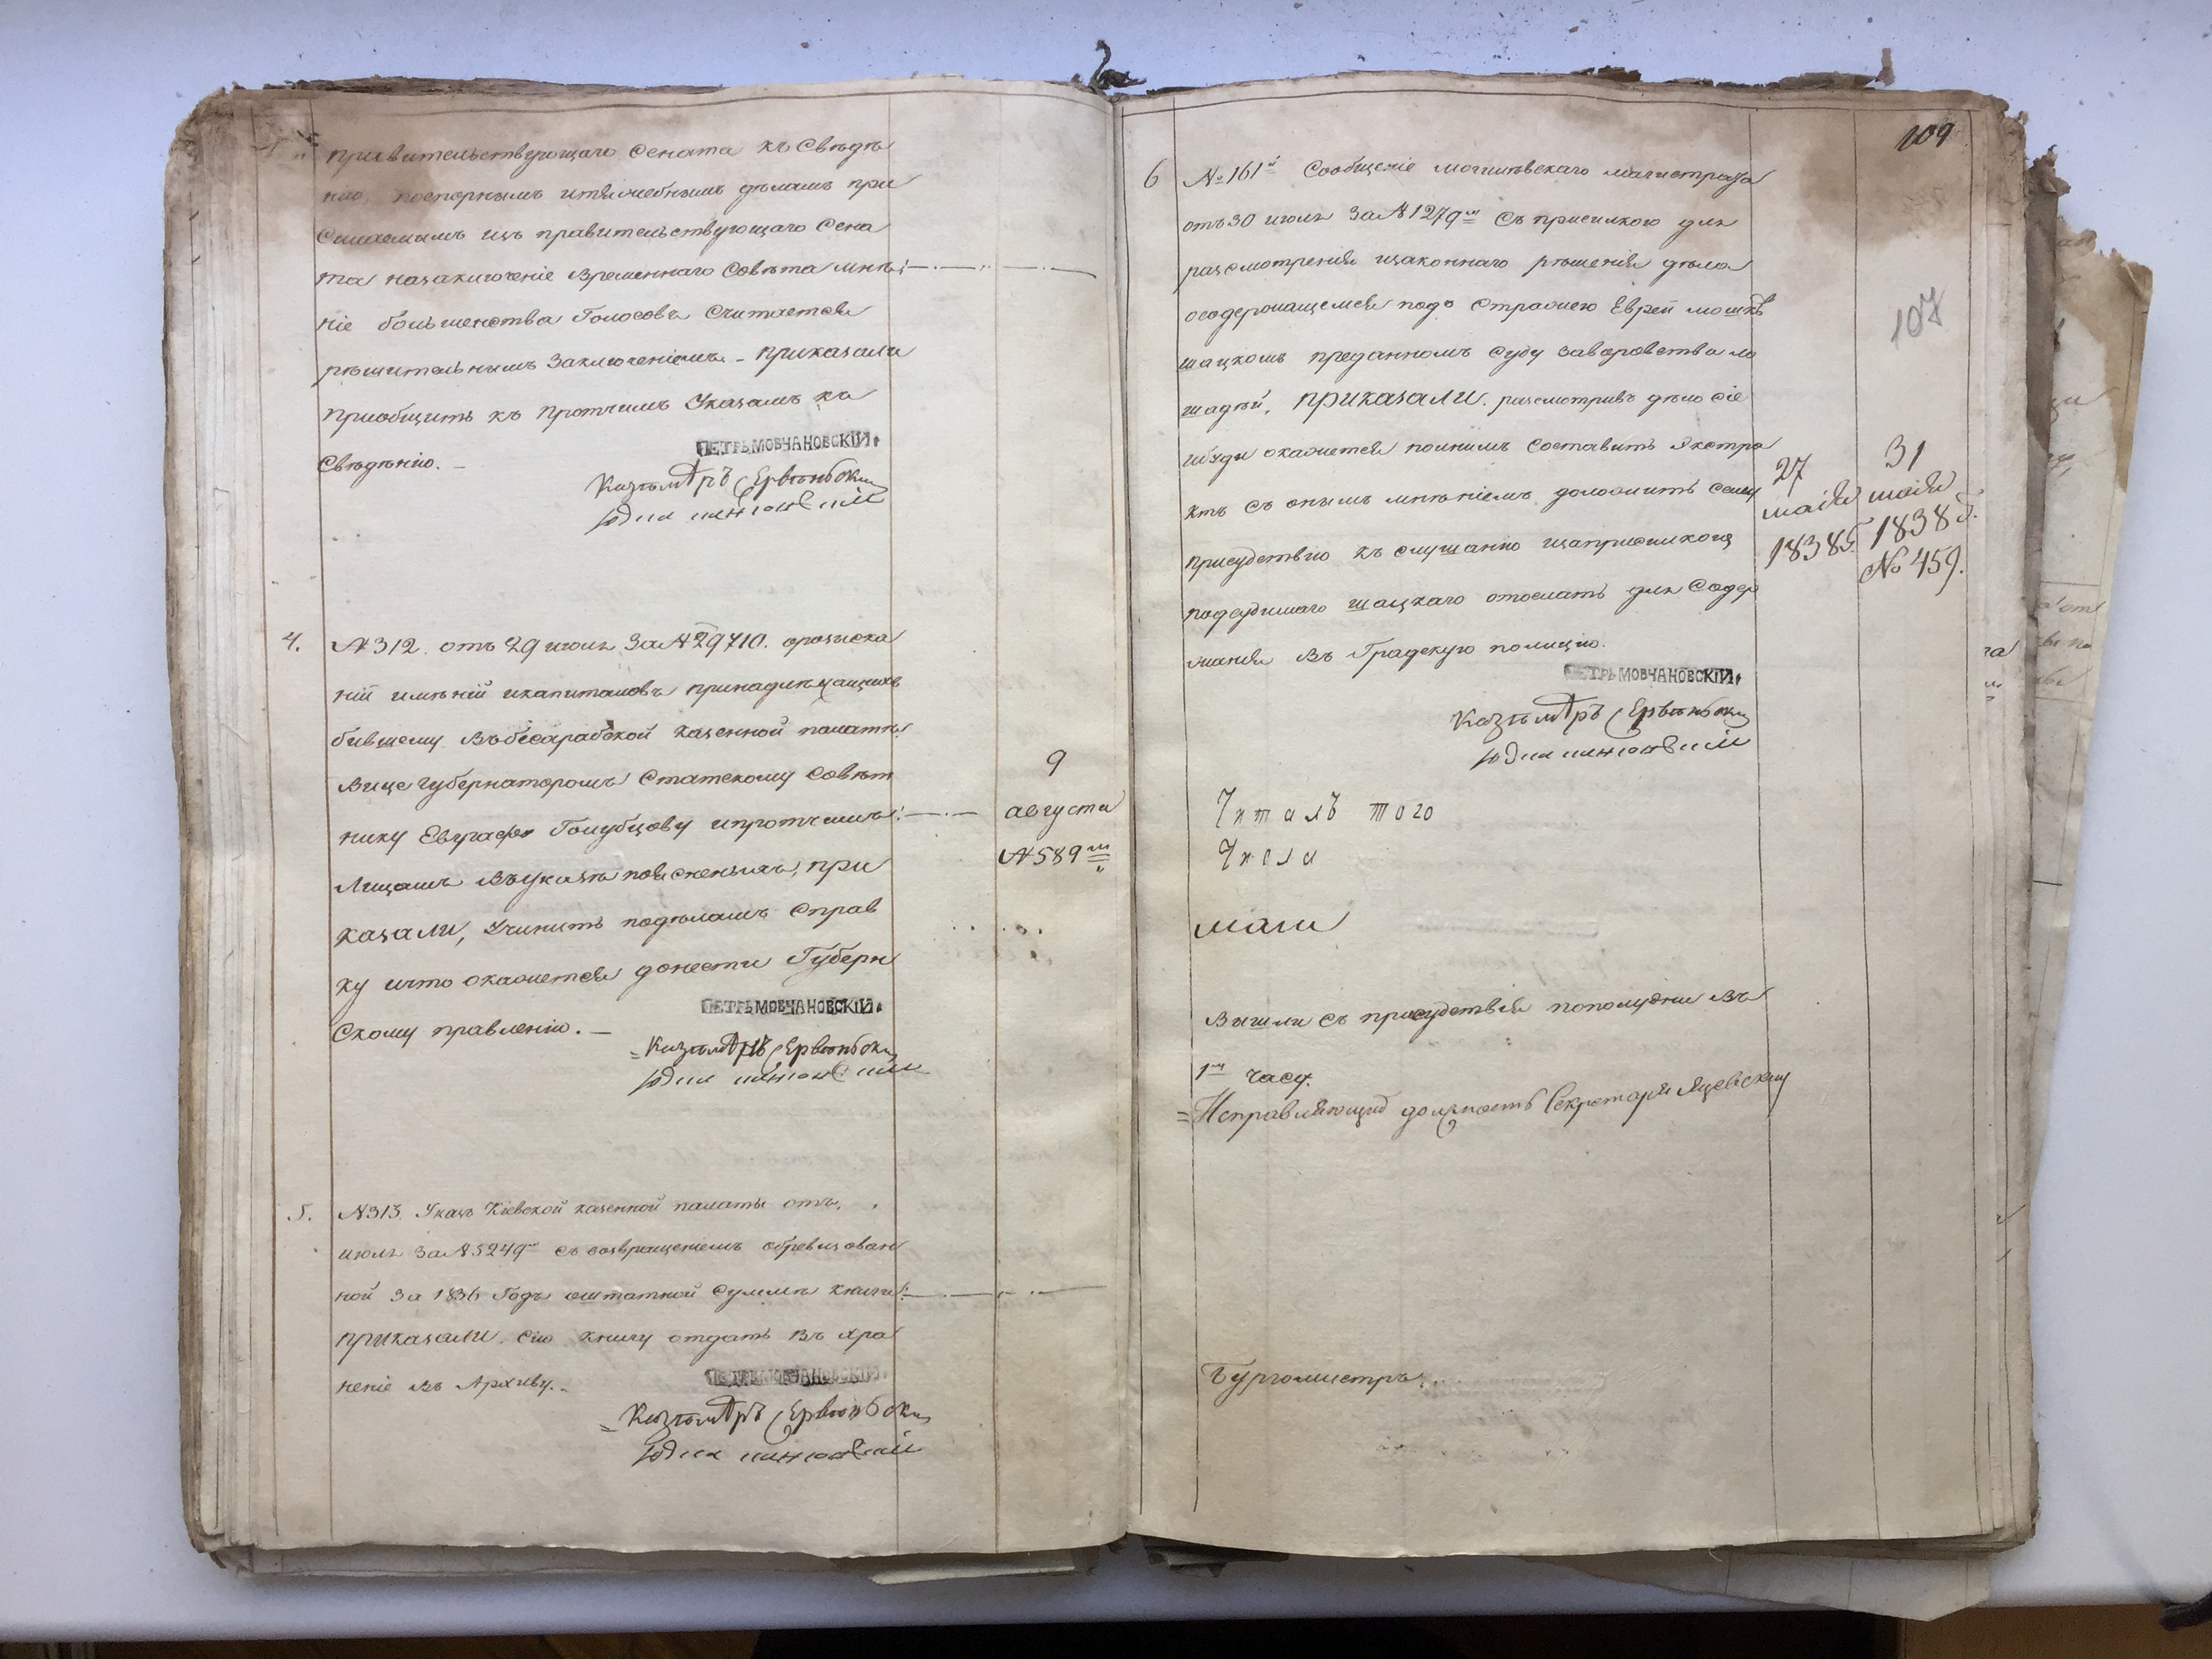 правительствующаго Сената къ Свѣдѣ
нію, поспорнымъ итяжебнымъ дѣламъ при
Сылаемымъ изъ правительствующаго Сена
та назаключеніе временнаго Совѣта мнѣ
ніе большенства Голосовъ Считается
рѣшительнымъ Заключеніемъ. - приказали
приобщить къ протчимъ Указамъ къ
Свѣденію. -
ПЕТРЪ МОВЧАНОВСКІЙ
4.
№ 312. отъ 29 июля За № 29710. орозыска
ніи имѣній икапиталовъ принадлежащихъ
бывшему Въбесарабской казенной палатѣ
Вице губернаторомъ Статскому Совѣт
нику Евграфу Голубцову ипротчимъ
Лицамъ Въуказѣ поясненымъ, при
казали, Учинить подѣламъ Справ
ку ичто окажется донести Губерн
Скому правленію. -
9
августа
№ 589
ПЕТРЪ МОВЧАНОВСКІЙ
5.
№ 313. Указъ Кіевской казенной палаты отъ
июля За № 5249 съ возвращеніемъ обревизован
ной За 1836 Годъ оштатной Суммѣ книги
приказали. Сію книгу отдать Въ хра
неніе Въ Архиву. -
ПЕТРЪ МОВЧАНОВСКІЙ
109
107
6
№ 161й Сообщеніе могилевскаго магистрата
отъ 30 июля За № 1279 Съ присилкою для
разсмотренія изаконнаго рѣшенія дѣла
осодержащемся подъ Стражею Еврей мошкѣ
шацкомъ преданномъ Суду Заворовства ло
шадей, приказали. разсмотривъ дѣло Сіе
ибуди окажется полнимъ Составить Экстра
ктъ Съ онымъ мнѣніемъ доложить Сему
присудствію къ Слушанію
подсудимаго шацкаго отослать для Содер
жанія Въ Градскую полицію.
27
маія
1838 г.
31
маія
1838 г.
№ 459.
ПЕТРЪ МОВЧАНОВСКІЙ
Читалъ того
Числа
маги
Вышли съ присудствія пополудни Въ
1м часу.
= Исправляющій должность Секретаря Яцевскій
Бургомистръ.